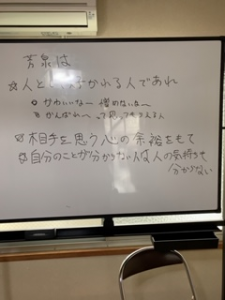 ☆人と　　かれる人であれ
○かわいいなー 憎めないなー
○がんばれ〜 って応　　える人
☆相手を思う心の余裕をもて
☆自分のことが分からない人は人の気持ちも
分からない